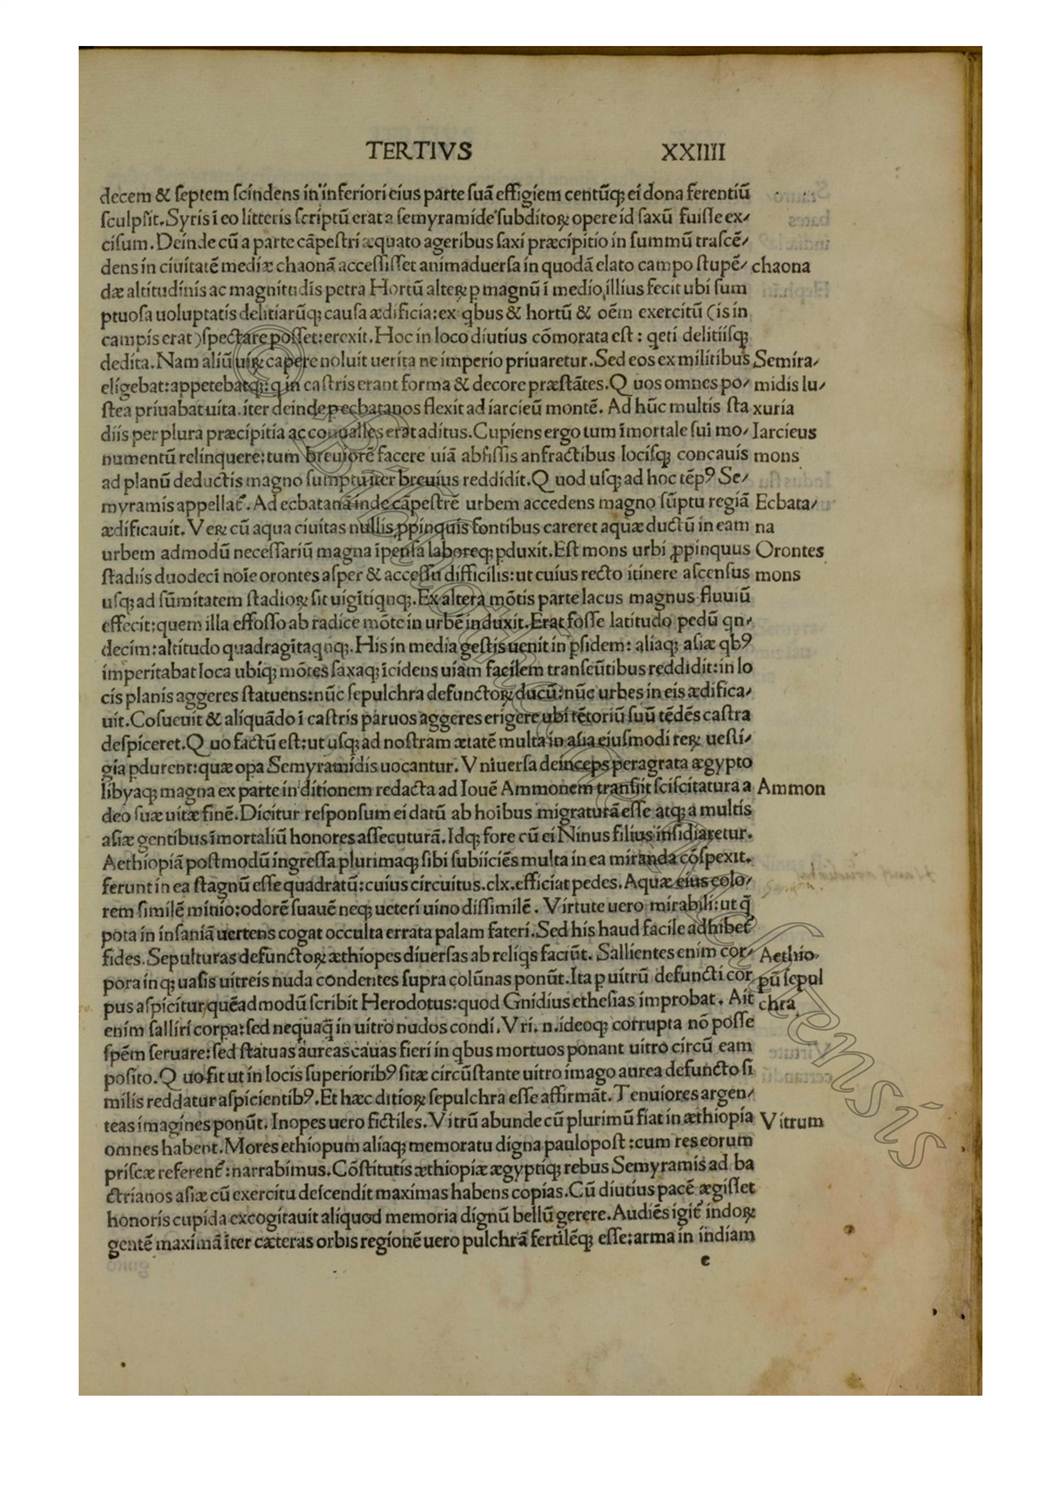 TERTIVS XXIIII
decem & septem scindens in inferiori eius parte suā effigiem centūq; ei dona ferentiū
sculpsit. Syris ī eo litteris scriptū erat a semyramide subditoꝝ opere id saxū fuisse ex/
cisum. Deinde cū a parte cāpestri æquato ageribus saxi præcipitio in summū trāscē/
dens in ciuitatē mediæ chaonā accessisset animaduersa in quodā elato campo stupē/ chaona
dæ altitudinis ac magnitudīs petra Hortū alteꝝ p magnū ī medio illius fecit ubi sum
ptuosa uoluptatis delitiarūq; causa ædificia: ex qbus & hortū & oēm exercitū (is in
campis erat) spectare posset: erexit. Hoc in loco diutius cōmorata est: qeti delitiisq;
dedita. Nam aliū uiꝝ capere noluit uerita ne imperio priuaretur. Sed eos ex militibus Semira/
eligebat: appetebatq; q in castris erant forma & decore præstātes. Quos omnes po/ midis lu/
stea priuabat uita. iter deinde p ecbatanos flexit ad iarcieū montē. Ad hūc multis sta xuria
diis per plura præcipitia ac conualles erat aditus. Cupiens ergo tum īmortale sui mo/ Iarcieus
numentū relinquere: tum breuiorē facere uiā abfissis anfractibus locisq; concauis mons
ad planū deductis magno sumptu iter breuius reddidit. Quod usq; ad hoc tēpꝰ Se/
myramis appellat᷒. Ad ecbatana inde cāpestrē urbem accedens magno sūptu regiā Ecbata/
ædificauit. Veꝝ cū aqua ciuitas nullis ꝓpinquis fontibus careret aquæ ductū in eam na
urbem admodū necessariū magna īpensa laboreq; pduxit. Est mons urbi ꝓpinquus Orontes
stadiis duodeci noīe orontes asper & accessu difficilis: ut cuius recto itinere ascensus mons
usq; ad sūmitatem stadioꝝ sit uigītiqnq;. Ex altera mōtis parte lacus magnus fluuiū
effecit: quem illa effosso ab radice mōte in urbē induxit. Erat fosse latitudo pedū qn/
decim: altitudo quadragītaqnq;. His in media gestis uenit in psidem: aliaq; asiæ qbꝰ
imperitabat loca ubiq; mōtes saxaq; īcidens uiam facilem transeūtibus reddidit: in lo
cis planis aggeres statuens: nūc sepulchra defunctoꝝ ducū: nūc urbes in eis ædifica/
uit. Cosueuit & aliquādo ī castris paruos aggeres erigere ubi tētoriū suū tēdēs castra
despiceret. Quo factū est: ut usq; ad nostram ætatē multa in asia eiusmodi reꝝ uesti/
gia pdurent: quæ opa Semyramidis uocantur. Vniuersa deinceps peragrata ægypto
libyaq; magna ex parte in ditionem redacta ad Iouē Ammonem transiit sciscitatura a Ammon
deo suæ uitæ finē. Dicitur responsum ei datū ab hoībus migraturā esse atq; a multis
asiæ gentibus īmortaliū honores assecuturā. Idq; fore cū ei Ninus filius insidiaretur.
Aethiopiā postmodū ingressa plurimaq; sibi subiiciēs multa in ea miranda cōspexit.
ferunt in ea stagnū esse quadratū: cuius circuitus .clx. efficiat pedes. Aquæ eius colo/
rem similē minio: odorē suauē neq; ueteri uino dissimilē. Virtute uero mirabili: ut q̄
pota in insaniā uertens cogat occulta errata palam fateri. Sed his haud facile adhibet᷒
fides. Sepulturas defunctoꝝ æthiopes diuersas ab reliqs faciūt. Sallientes enim cor/ Aethio
pora inq; uasis uitreis nuda condentes supra colūnas ponūt. Ita p uitrū defuncti cor pū sepul
pus aspicitur quēadmodū scribit Herodotus: quod Gnidius ethesias improbat. Ait chra
enim salliri corpa: sed nequaq̄ in uitro nudos condi. Vri .n. ideoq; corrupta nō posse
spēm seruare: sed statuas aureas cauas fieri in qbus mortuos ponant uitro circū eam
posito. Quo fit ut in locis superioribꝰ sitæ circūstante uitro imago aurea defuncto si
milis reddatur aspicientibꝰ. Et hæc ditioꝝ sepulchra esse affirmāt. Tenuiores argen/
teas imagines ponūt. Inopes uero fictiles. Vitrū abunde cū plurimū fiat in æthiopia Vitrum
omnes habent. Mores ethiopum aliaq; memoratu digna paulopost: cum res eorum
priscæ referent᷒: narrabimus. Cōstitutis æthiopiæ ægyptiq; rebus Semyramis ad ba
ctrianos asiæ cū exercitu descendit maximas habens copias. Cū diutius pacē ægisset
honoris cupida excogitauit aliquod memoria dignū bellū gerere. Audiēs igit᷒ indoꝝ
gentē maximā īter cæteras orbis regionē uero pulchrā fertilēq; esse: arma in indiam
c